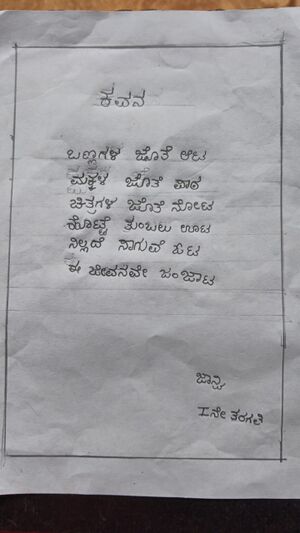 ಕವನ
ಬಣ್ಣಗಳ ಜೊತೆ ಆಟ
ಮಕ್ಕಳ ಜೊತೆ ಪಾಠ
ಚಿತ್ರಗಳ ಜೊತೆ ನೋಟ
ಹೊಟ್ಟೆ ತುಂಬಲು ಊಟ
ನಿಲ್ಲದೆ ಸಾಗುವ ಓಟ
ಈ ಜೀವನವೇ ಜಂಜಾಟ
ಜಾನ್ಹವಿ
I ನೇ ತರಗತಿ